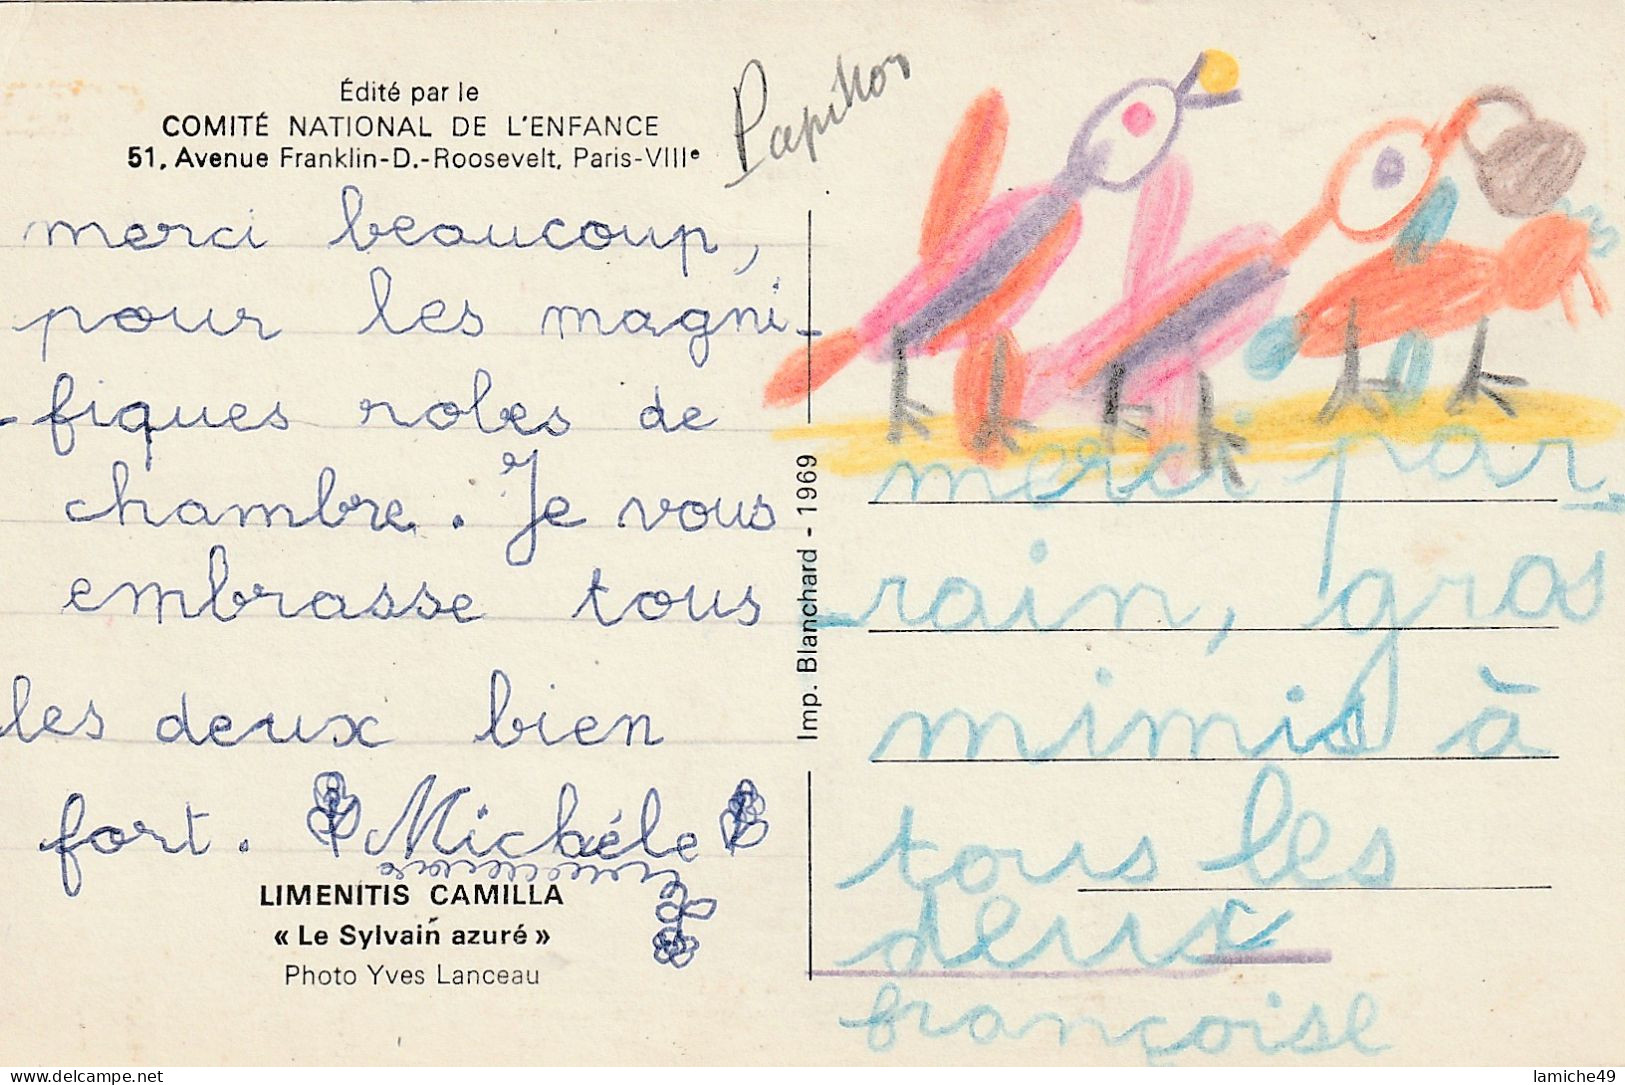 Édité par le
COMITÉ NATIONAL DE L'ENFANCE
51, Avenue Franklin-D.-Roosevelt, Paris-VIIIe
Papillon
merci beaucoup,
pour les magni-
-fiques robes de
chambre. Je vous
embrasse tous
les deux bien
fort. Michéle
LIMENITIS CAMILLA
« Le Sylvain azuré »
Photo Yves Lanceau
Imp. Blanchard - 1969
merci par-
-rain, gros
mimis à
tous les
deux
françoise
lamiche49